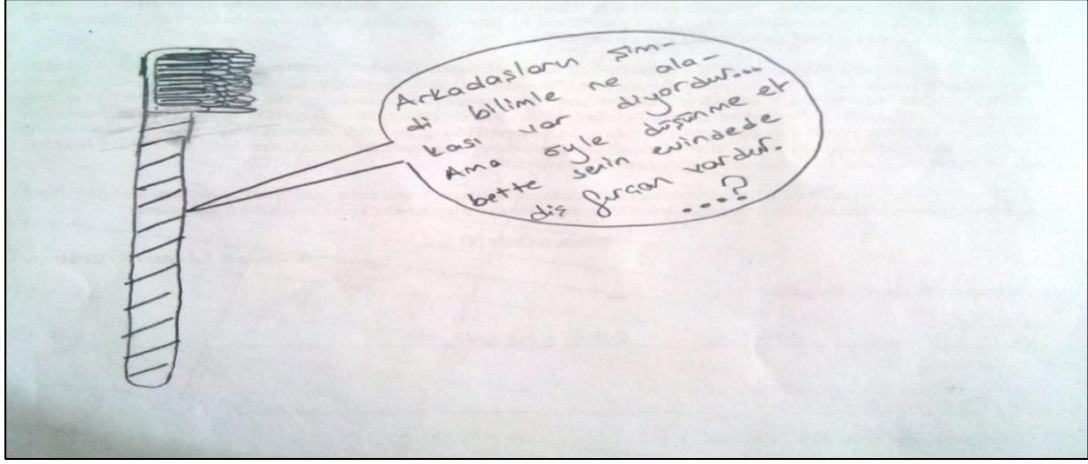 Arkadaşların şim-
di bilimle ne ala-
kası var diyordur...
Ama öyle düşünme el
bette senin evindede
diş fırçan vardır.
...?